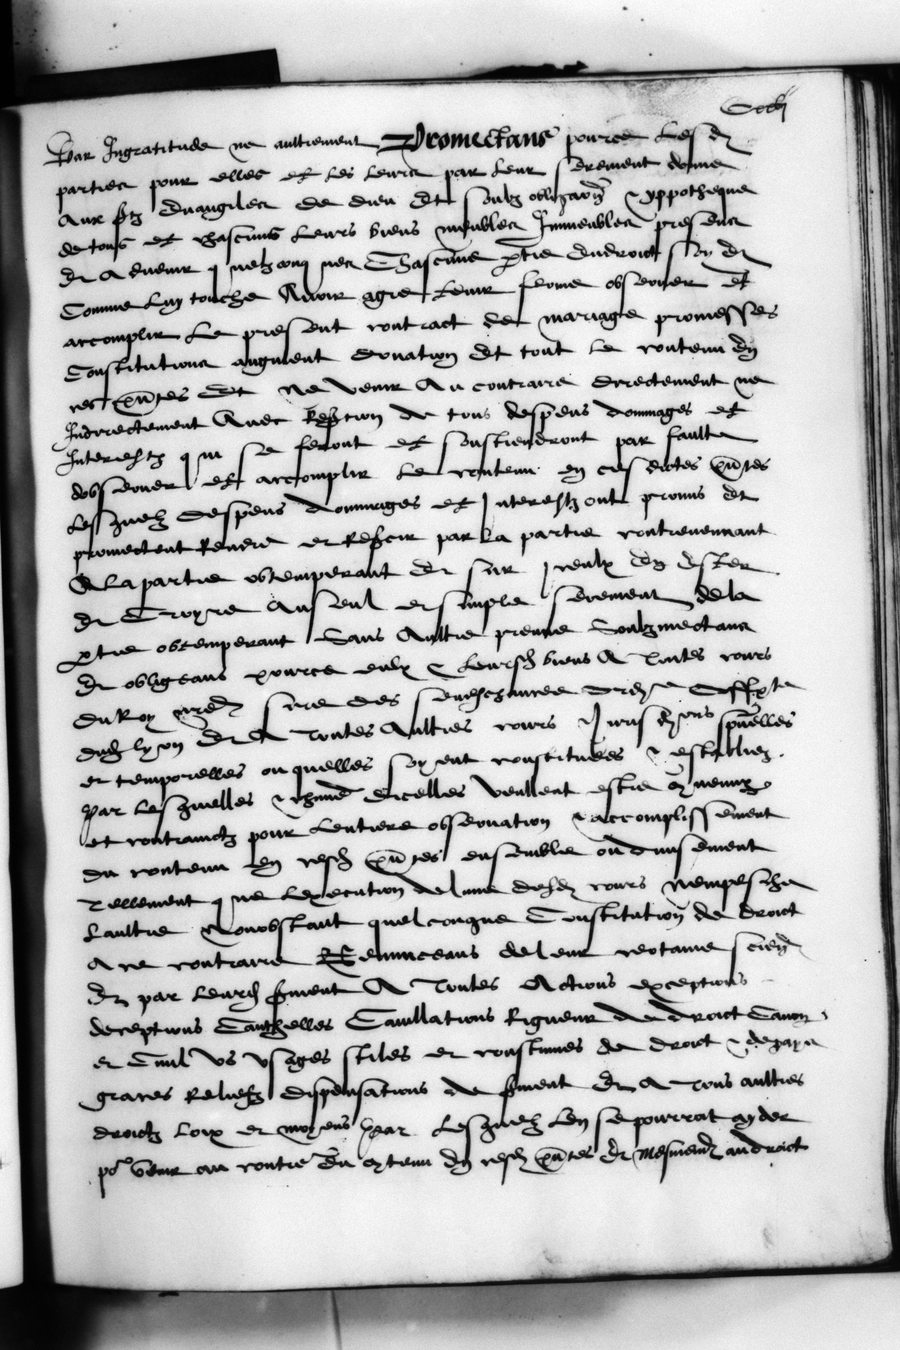 Par Ingratitude ne aultrement Promectans pource Lesd
parties pour elles et les leurs par leur serement donne
Aux Stz Euangiles de dieu Et soubz obligaon & yppotheque
de tous et chascuns Leurs biens meubles Immeubles presens
Et A duenir quelzconques Chascune ptie endroict soy Et
Comme Luy touche Auoir agre tenir ferme obseruer Et
accomplir Le present contract de mariage promesses
Constitutions augment donation Et tout le contenu En
ces pntes Et Ne venir Au contraire directement ne
Indirectement Auec Refection de tous despens dommages et
Interestz qui se feront et soustiendront par faulte
dobseruer et accomplir Le contenu en cesdictes pntes
Lesquelz despens dommages et Interestz ont promis Et
promectent Rendre et Reffaire par La partie contreuenant
A La partie obtemperant Et sur Iceulx En Ester
Et Croyre Au seul et simple serement de la
ptie obtemperant Sans Aultre preuue Soubzmectans
Et obligeans pource eulx & Leursd biens A Toutes cours
du Roy nred sire des seneschaucee
dud lyon Et A Toutes Aultres cours & Jurisdons spuelles
et temporelles ou quelles soyent constituees & establies
Par Lesquelles & chune dicelles veullent estre
et contrainctz pour Lentiere obseruation & accomplissement
du contenu En cesd pntes ensemble ou diuisement
Tellement que Lexecution de lune desd cours Nempesche
Laultre Nonobstant quelconque Constitution de droict
A ce contraire Renunceans de leur certaine
Et par Leurd serment A Toutes Actions exceptions
deceptions Cauthelles Cauillations Rigueur de droict Canon
et Ciuil Vs vsages stiles et coustumes de droict &
graces Reliefz dispensations de serment Et A Tous aultres
droictz Loix et moyens Par Lesquelz Len se pourroit ayder
po venir au contre du contenu En cesd pntes Et Mesmemt au droict